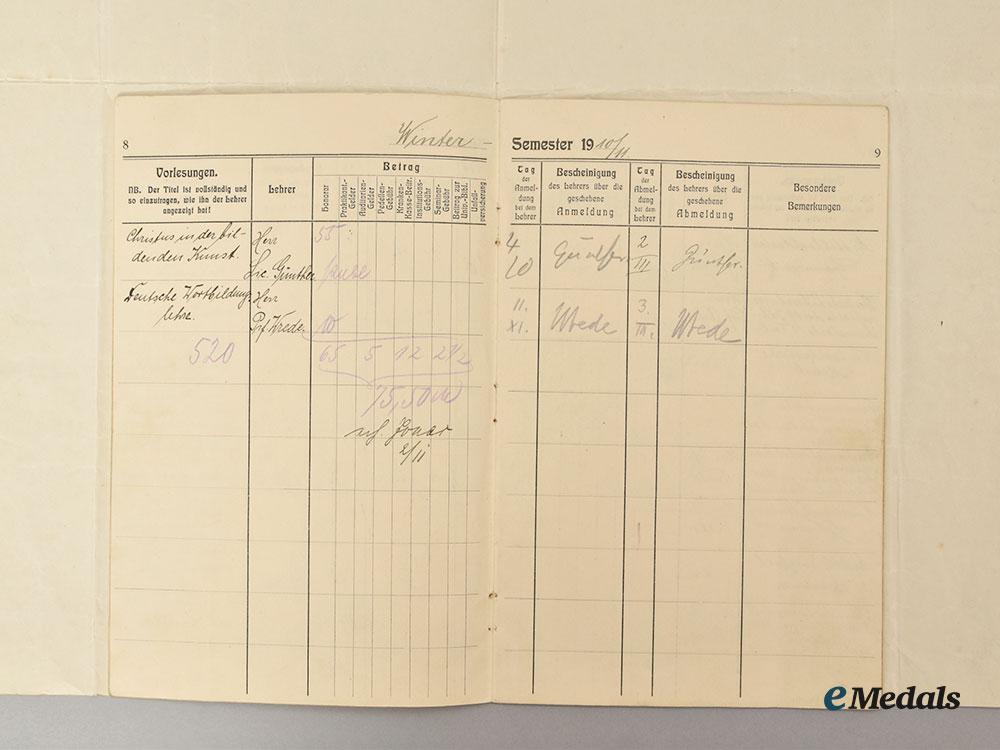 8
Winter –
Vorlesungen.
NB. Der Titel ist vollständig und
so einzutragen, wie ihn der Lehrer
angezeigt hat!
Lehrer
Betrag
Honorar
Praktikant.-
Gelder
Auditorien-
Gelder
Pedellen-
Gebühr
Kranken-
Kasse-Beitr.
Institutions-
Gebühr
Seminar-
Gebühr
Beitrag zur
Univ.-Bibl.
Unfall-
versicherung
Christus in der bil-
denden Kunst.
Herr
Lic. Günther
55
Deutsche Wortbildungs-
lehre.
Herr
Prf Wrede
10
520
65 5 12 2 1/2
75,50 M
2/11
Semester 19 10/11
9
Tag
der
Anmel-
dung
bei dem
Lehrer
Bescheinigung
des Lehrers über die
geschehene
Anmeldung
Tag
der
Abmel-
dung
bei dem
Lehrer
Bescheinigung
des Lehrers über die
geschehene
Abmeldung
Besondere
Bemerkungen
4
10
Günther
2
III
Günther
11.
XI.
Wrede
3.
III.
Wrede
eMedals